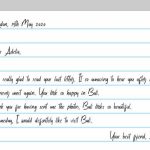 don, 14th May 2020
Adela,
really glad to read your last letter. It is amazing to hear you after
again. You look so happy in Bali.
you for having sent me the photos, Bali looks so beautiful.
someday, I would definitely like to visit Bali.
Your best friend,